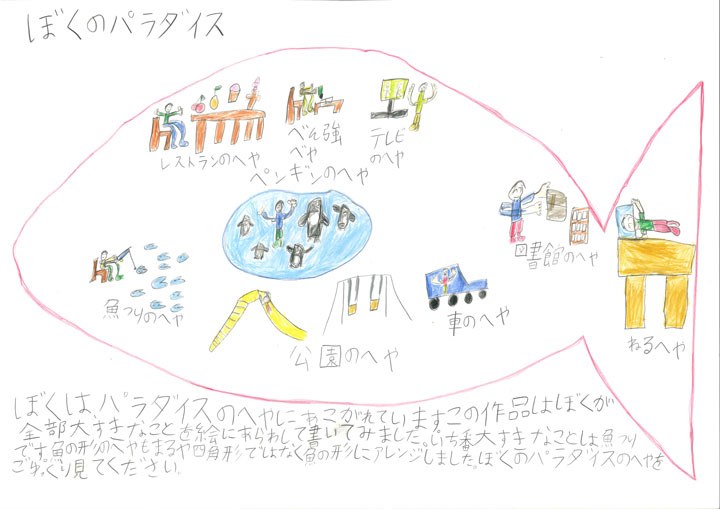 ぼくのパラダイス
レストランのへや
べん強
べや
テレビ
のへや
ペンギンのへや
図書館のへや
魚つりのへや
公園のへや
車のへや
ねるへや
ぼくは、パラダイスのへやにあこがれていますこの作品はぼくが
全部大すきなことを絵にあらわして書いてみました。いち番大すきなことは魚つり
です魚の形のへやもまるや四角形ではなく魚の形にアレンジしました。ぼくのパラダイスのへやを
ごゆっくり見てください。